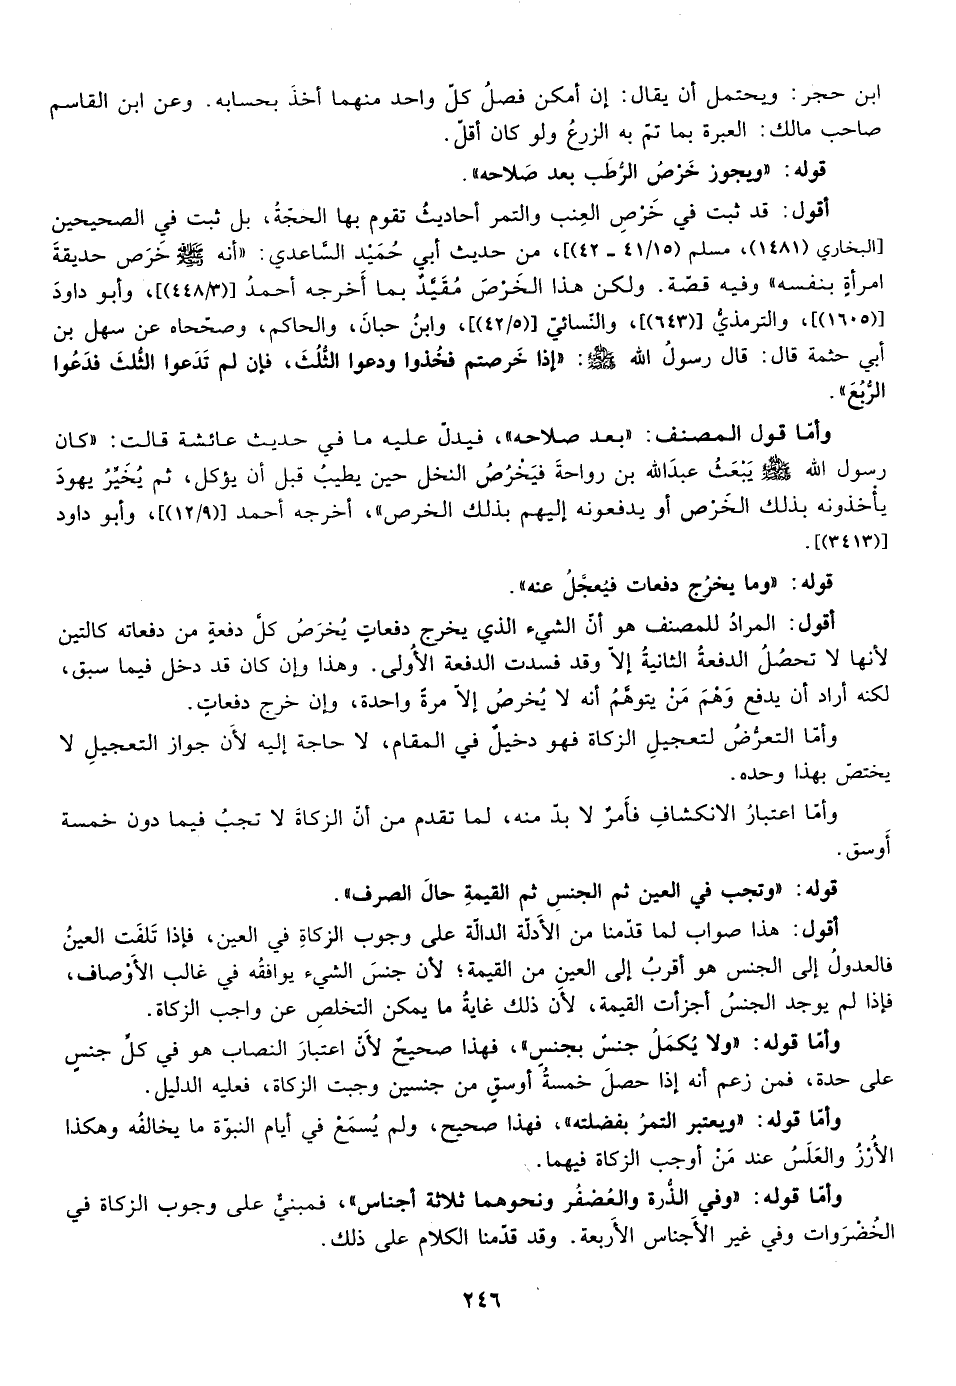 ابن حجر: ويحتمل أن يقال: إن أمكن فصلُ كلّ واحد منهما أخذَ بحسابه. وعن ابن القاسم
صاحب مالك: العبرة بما تمّ به الزرعُ ولو كان أقلّ.
قوله: «ويجوز خَرْصُ الرُّطَب بعد صَلاحه».
أقول: قد ثبت في خَرْصِ العِنب والتمر أحاديثُ تقوم بها الحجّةُ، بل ثبت في الصحيحين
[البخاري (١٤٨١)، مسلم (٤١/١٥ - ٤٢)]، من حديث أبي حُمَيْد السَّاعدي: «أنه ﷺ خَرَص حديقةَ
امرأةٍ بنفسه» وفيه قصّة. ولكن هذا الخَرْصَ مُقَيَّدٌ بما أَخرجه أحمدُ [(٤٤٨/٣)]، وأبو داودَ
[(١٦٠٥)]، والترمذيُّ [(٦٤٣)]، والنّسائيّ [(٤٢/٥)]، وابنُ حبانَ، والحاكم، وصحّحاه عن سهل بن
أبي حثمة قال: قال رسولُ الله ﷺ: «إذا خَرصتم فخُذوا ودعوا الثُلُثَ، فإن لم تَدَعوا الثُلثَ فدَعُوا
الرُّبُعَ».
وأمّا قول المصنف: «بعد صلاحه»، فيدلّ عليه ما في حديث عائشة قالت: «كان
رسول الله ﷺ يَبْعَثُ عبدَالله بن رواحةَ فيَخْرُصُ النخل حين يطيبُ قبل أن يؤكل، ثم يُخَيِّرُ يهودَ
يأخذونه بذلك الخَرْص أو يدفعونه إليهم بذلك الخرص»، أخرجه أحمد [(١٢/٩)]، وأبو داود
[(٣٤١٣)].
قوله: «وما يخرُج دفعات فيُعجَّلُ عنه».
أقول: المرادُ للمصنف هو أنّ الشيء الذي يخرج دفعاتٍ يُخرَصُ كلَّ دفعةٍ من دفعاته كالتين
لأنها لا تحصُلُ الدفعةُ الثانيةُ إلاّ وقد فسدت الدفعة الأُولى. وهذا وإن كان قد دخل فيما سبق،
لكنه أراد أن يدفع وَهْمَ مَنْ يتوهَّمُ أنه لا يُخرصُ إلاّ مرةً واحدة، وإن خرج دفعاتٍ.
وأمّا التعرُّضُ لتعجيلِ الزكاة فهو دخيلٌ في المقام، لا حاجة إليه لأن جواز التعجيلِ لا
يختصّ بهذا وحده.
وأمّا اعتبارُ الانكشافِ فأَمرٌ لا بدّ منه، لما تقدم من أنّ الزكاةَ لا تجبُ فيما دون خمسة
أَوسق.
قوله: «وتجب في العين ثم الجنسِ ثم القيمةِ حالَ الصرف».
أقول: هذا صواب لما قدّمنا من الأَدلّة الدالّة على وجوب الزكاةِ في العين، فإذا تَلفَت العينُ
فالعدولُ إلى الجنس هو أقربُ إلى العينِ من القيمة؛ لأن جنسَ الشيء يوافقُه في غالب الأَوْصاف،
فإذا لم يوجد الجنسُ أجزأت القيمة، لأن ذلك غايةُ ما يمكن التخلصِ عن واجب الزكاة.
وأمّا قوله: «ولا يُكمَلُ جنسٌ بجنسٍ»، فهذا صحيحٌ لأنّ اعتبارَ النصاب هو في كلِّ جنسٍ
على حدة، فمن زعم أنه إذا حصلَ خمسةُ أوسقٍ من جنسين وجبت الزكاة، فعليه الدليل.
وأمّا قوله: «ويعتبر التمرُ بفضلته»، فهذا صحيح، ولم يُسمَعْ في أيام النبوّة ما يخالفُه وهكذا
الأُرْزُ والعَلَسُ عند مَنْ أوجب الزكاة فيهما.
وأمّا قوله: «وفي الذُّرة والعُصْفُر ونحوهما ثلاثة أجناس»، فمبنيٌّ على وجوب الزكاة في
الخُضْرَوات وفي غير الأَجناس الأَربعة. وقد قدّمنا الكلام على ذلك.
٢٤٦